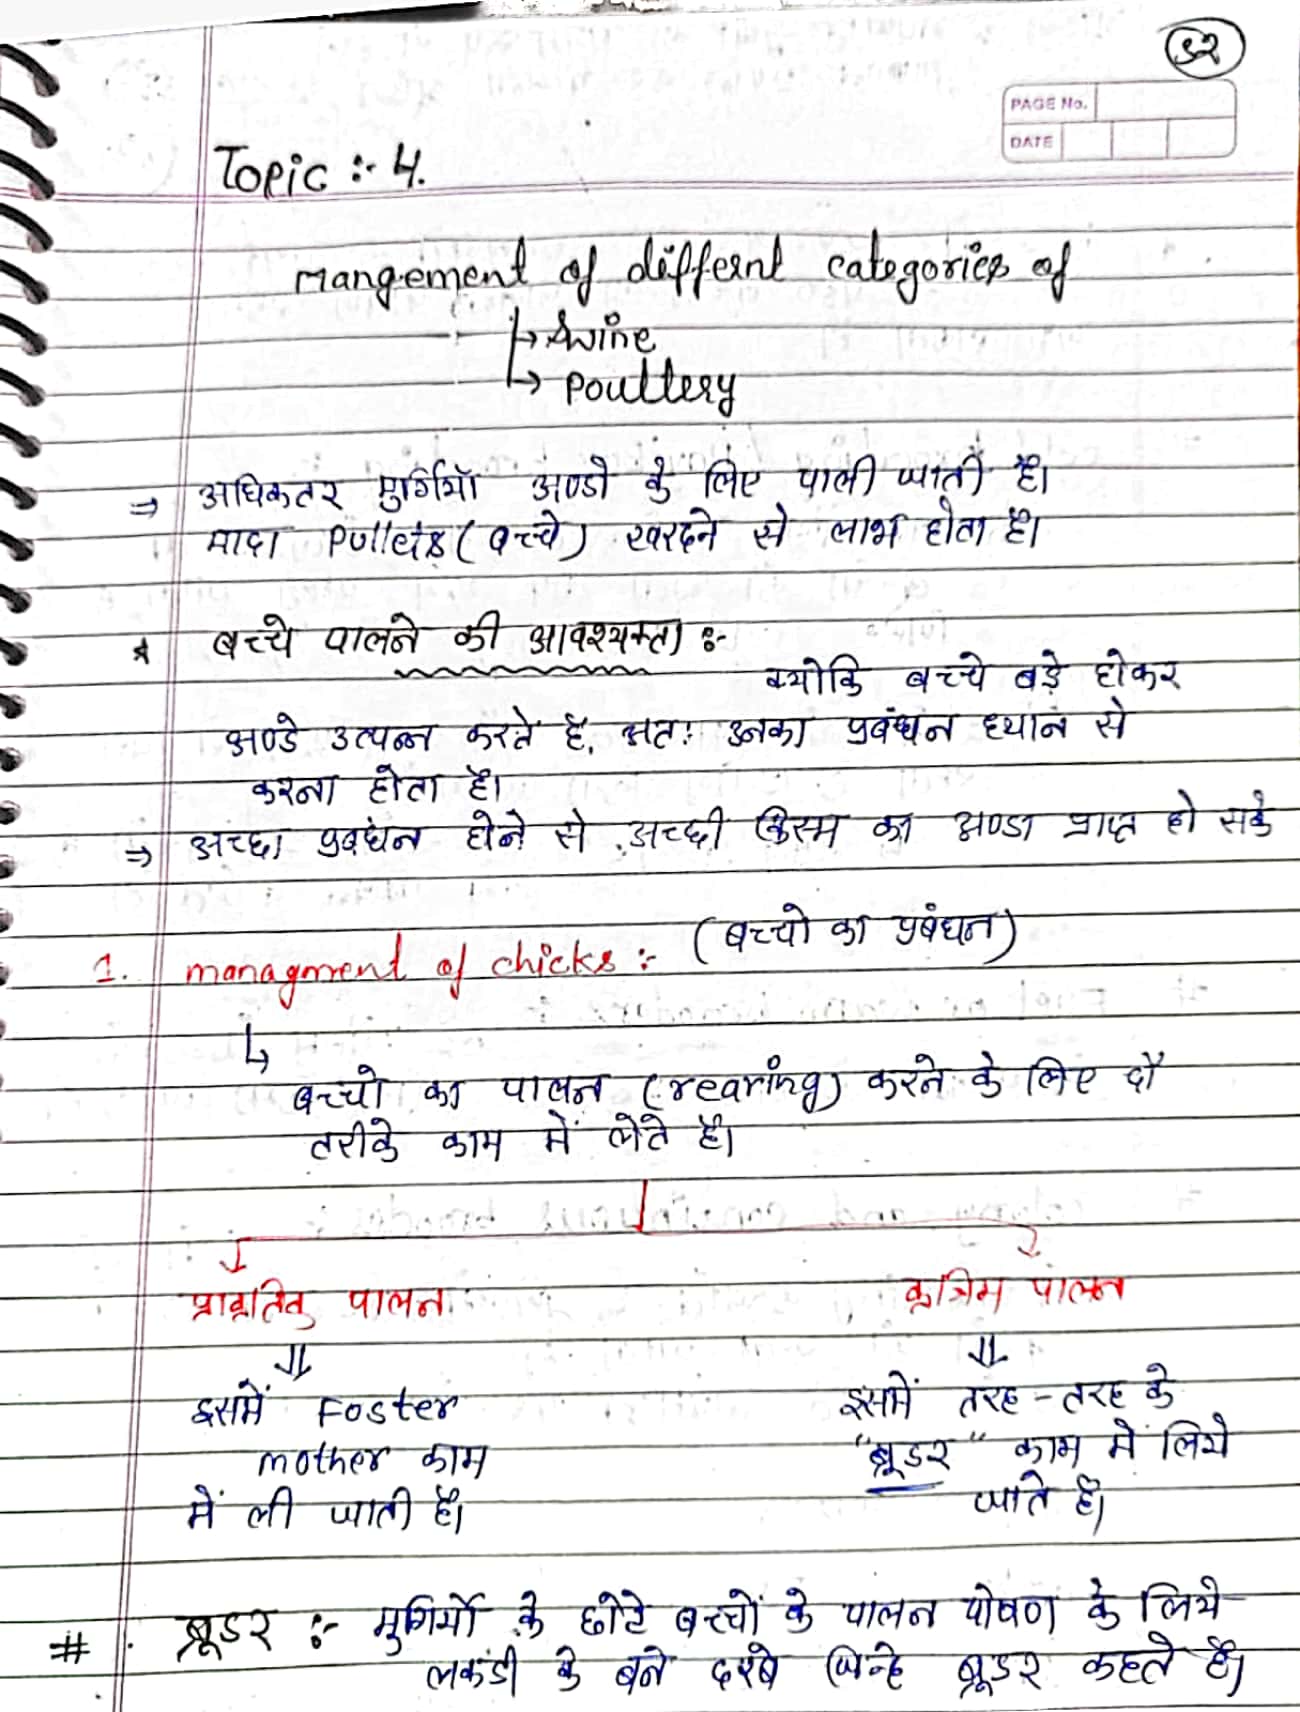 52
PAGE No.
DATE
Topic :- 4.
mangement of differnt categories of
↳ Swine
↳ Poultery
⇒ अधिकतर मुर्गियाँ अण्डो के लिए पाली जाती है।
मादा Pullets (बच्चे) खरदने से लाभ होता है।
* बच्चे पालने की आवश्यकता :-
क्योकि बच्चे बड़े होकर
अण्डे उत्पन्न करते है, अतः उनका प्रबंधन ध्यान से
करना होता है।
⇒ अच्छा प्रबधंन होने से अच्छी किस्म का अण्डा प्राप्त हो सके
(बच्चो का प्रबंधन)
1. managment of chicks :-
↳
बच्चो का पालन (rearing) करने के लिए दो
तरीके काम में लेते है।
प्राकृतिक पालन कृत्रिम पालन
⇓ ⇓
इसमें Foster इसमें तरह-तरह के
mother काम "ब्रूडर" काम में लिये
में ली जाती है। जाते है।
# ब्रूडर :- मुर्गियों के छोटे बच्चों के पालन पोषण के लिये
लकडी के बने दरबे जिन्हे ब्रूडर कहते है।